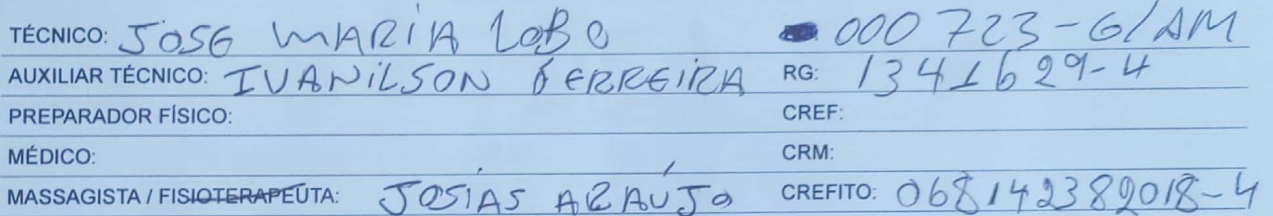 TÉCNICO: JOSE MARIA LOBO 000723-G/AM
AUXILIAR TÉCNICO: IVANILSON FERREIRA RG: 1341629-4
PREPARADOR FÍSICO: CREF:
MÉDICO: CRM:
MASSAGISTA / FISIOTERAPEUTA: JOSIAS ARAÚJO CREFITO: 068142382018-4